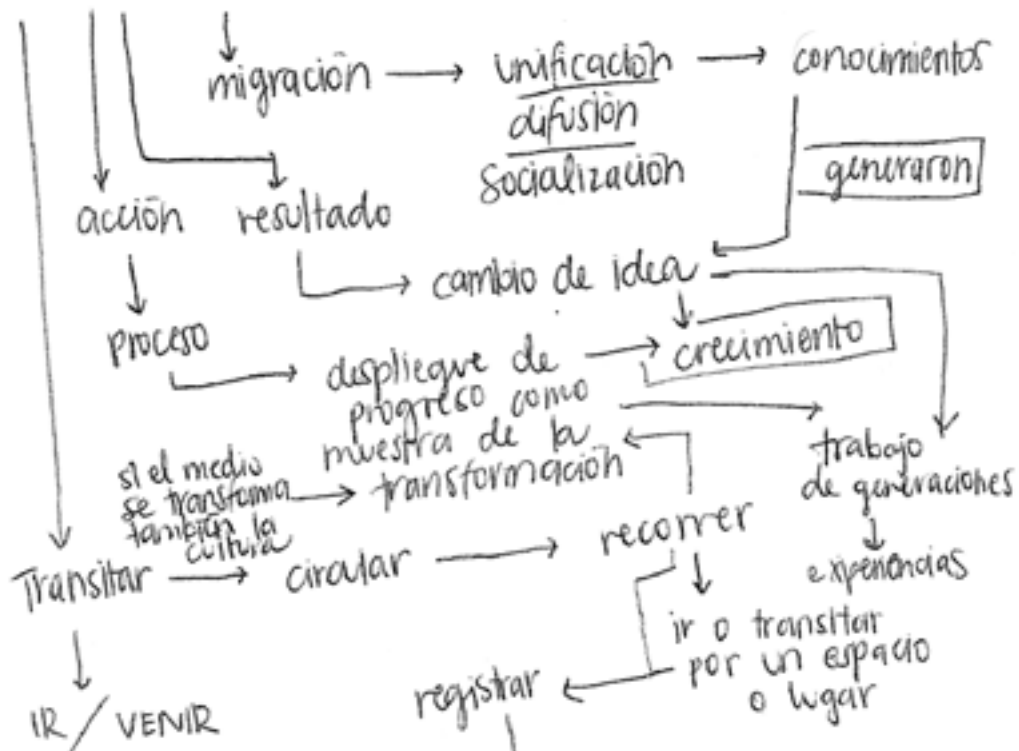 migración
unificación
difusión
socialización
conocimientos
generaron
acción
resultado
cambio de idea
proceso
despliegue de
progreso como
muestra de la
transformación
crecimiento
si el medio
se transforma
también la
cultura
trabajo
de generaciones
experiencias
Transitar
circular
recorrer
ir o transitar
por un espacio
o lugar
IR / VENIR
registrar